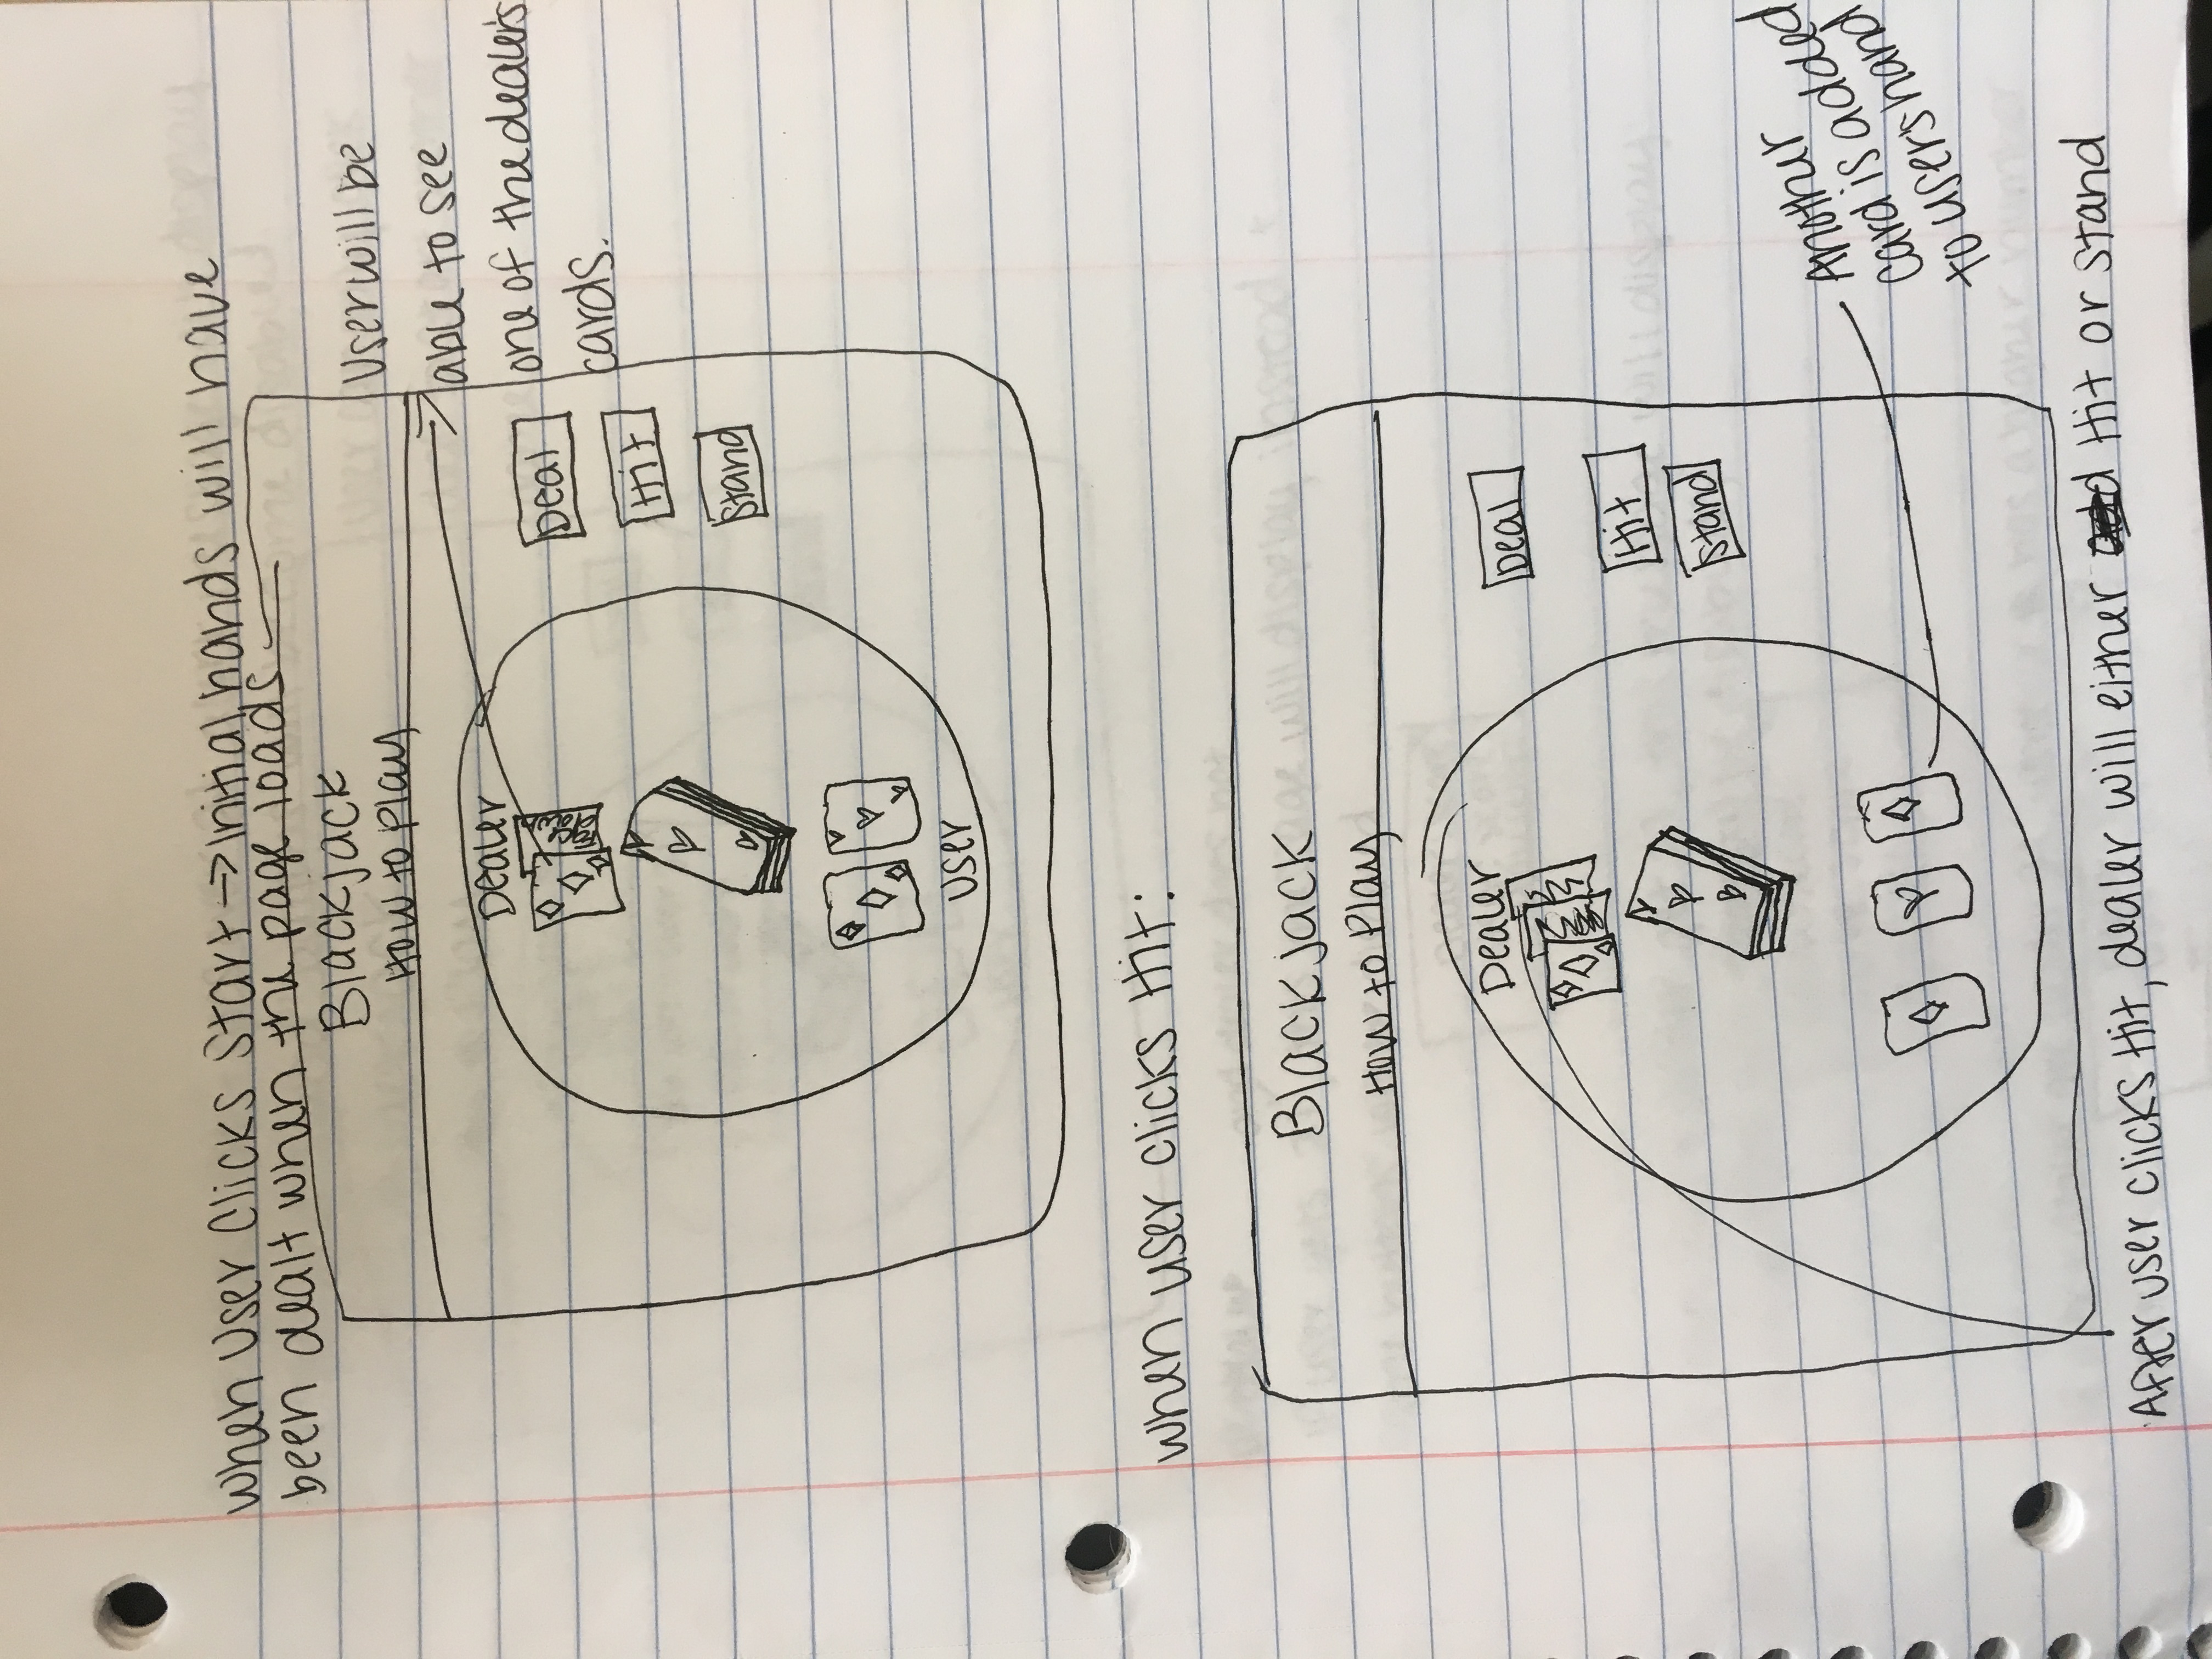 When User Clicks Start → Initial hands will have
been dealt when the page loads
Blackjack
How to Play
User will be
able to see
one of the dealer's
cards.
Dealer
face down
Deal
Hit
Stand
User
When user clicks Hit:
Blackjack
How to Play
Dealer
Deal
Hit
Stand
Another
card is added
to user's hand
After user clicks Hit, dealer will either Hit or Stand